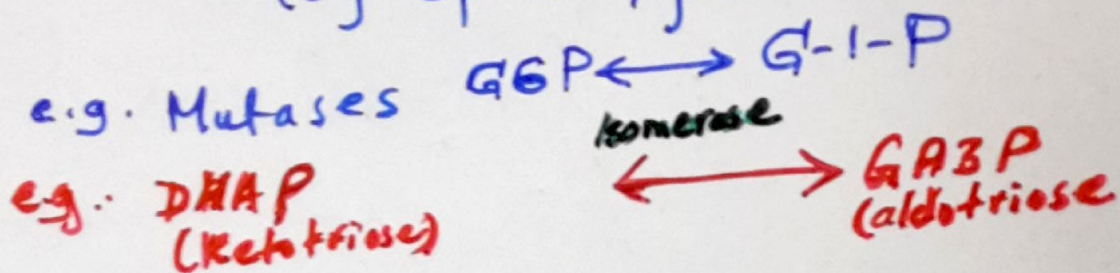 e.g. Mutases G6P ↔ G-1-P
Isomerase
e.g. DHAP ↔ GA3P
(Ketotriose) (aldotriose